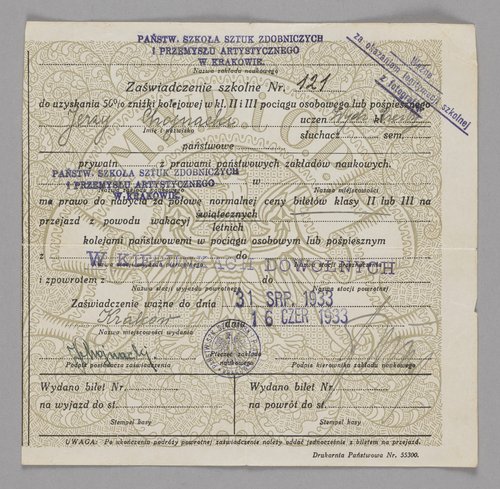 PAŃSTW. SZKOŁA SZTUK ZDOBNICZYCH
I PRZEMYSŁU ARTYSTYCZNEGO
W KRAKOWIE.
Nazwa zakładu naukowego
Ważne
za okazaniem legitymacji szkolnej
z fotografją
Zaświadczenie szkolne Nr. 121
do uzyskania 50% zniżki kolejowej w kl. II i III pociągu osobowego lub pośpiesznego
Jerzy Chojnacki uczeń
Imię i nazwisko słuchacz sem.
państwowe
prywatn. z prawami państwowych zakładów naukowych.
PAŃSTW. SZKOŁA SZTUK ZDOBNICZYCH
I PRZEMYSŁU ARTYSTYCZNEGO w
W KRAKOWIE.
Nazwa miejscowości
ma prawo do nabycia za połowę normalnej ceny biletów klasy II lub III na
przejazd z powodu wakacyj świątecznych
letnich
kolejami państwowemi w pociągu osobowym lub pośpiesznym
z do
W KIERUNKACH DOWOLNYCH
i zpowrotem z do
Nazwa stacji wyjazdu powrotnego Nazwa stacji powrotnej
Zaświadczenie ważne do dnia 31 SRP. 1933
Kraków dnia 16 CZER 1933
Nazwa miejscowości wydania
JChojnacki
Podpis posiadacza zaświadczenia
Pieczęć zakładu
naukowego
Podpis kierownika zakładu naukowego
Wydano bilet Nr. Wydano bilet Nr.
na wyjazd do st. na powrót do st.
Stempel kasy Stempel kasy
UWAGA: Po ukończeniu podróży powrotnej zaświadczenie należy oddać jednocześnie z biletem na przejazd.
Drukarnia Państwowa Nr. 35300.